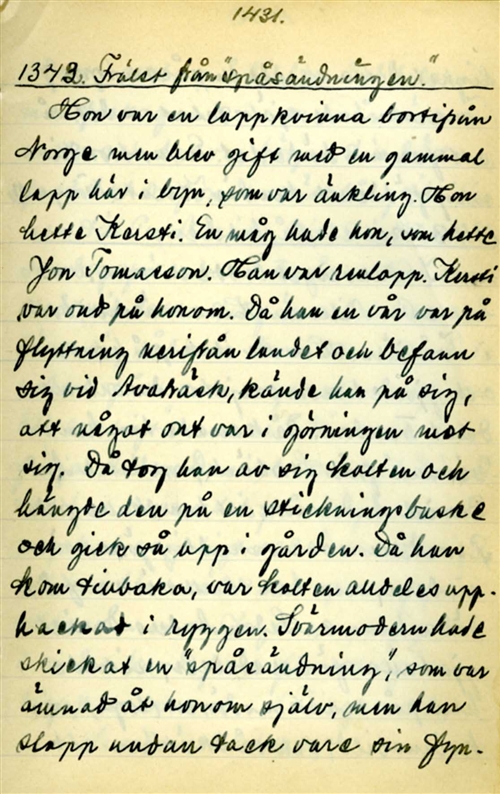 1431.
1342. Frälst från "spåsändningen."
Hon var en lappkvinna bortifrån
Norge men blev gift med en gammal
lapp här i byn, som var änkling. Hon
hette Kersti. En måg hade hon, som hette
Jon Tomasson. Han var renlapp. Kersti
var ond på honom. Då han en vår var på
flyttning nerifrån landet och befann
sig vid Avaträsk, kände han på sig,
att något ont var i görningen mot
sig. Då tog han av sig kolten och
hängde den på en stickningsbuske
och gick så upp i gården. Då han
kom tillbaka, var kolten alldeles upp-
hackad i ryggen. Svärmodern hade
skickat en "spåsändning", som var
ämnad åt honom själv, men han
slapp undan tack vare sin fyn-